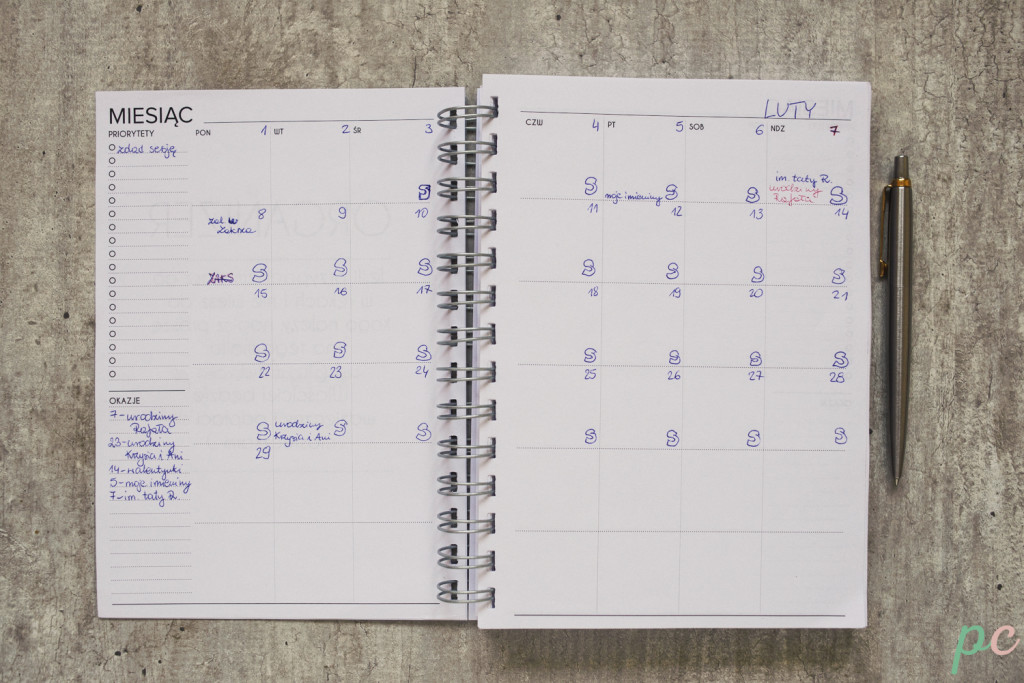 MIESIĄC
LUTY
PRIORYTETY
PON 1 WT 2 ŚR 3
CZW 4 PT 5 SOB 6 NDZ 7
zdać sesję
S
S moje imieniny S S im. taty R. urodziny Rafała S
8 9 10 11 12 13 14
zal. w
ZAKS S S S S S S S
15 16 17 18 19 20 21
S S S S S S S
22 23 24 25 26 27 28
OKAZJE
7-urodziny
Rafała
23-urodziny
Krzysia i Ani
14-walentynki
5-moje imieniny
7-im. taty R.
S urodziny
Krzysia i Ani S S S S S S
29
pc